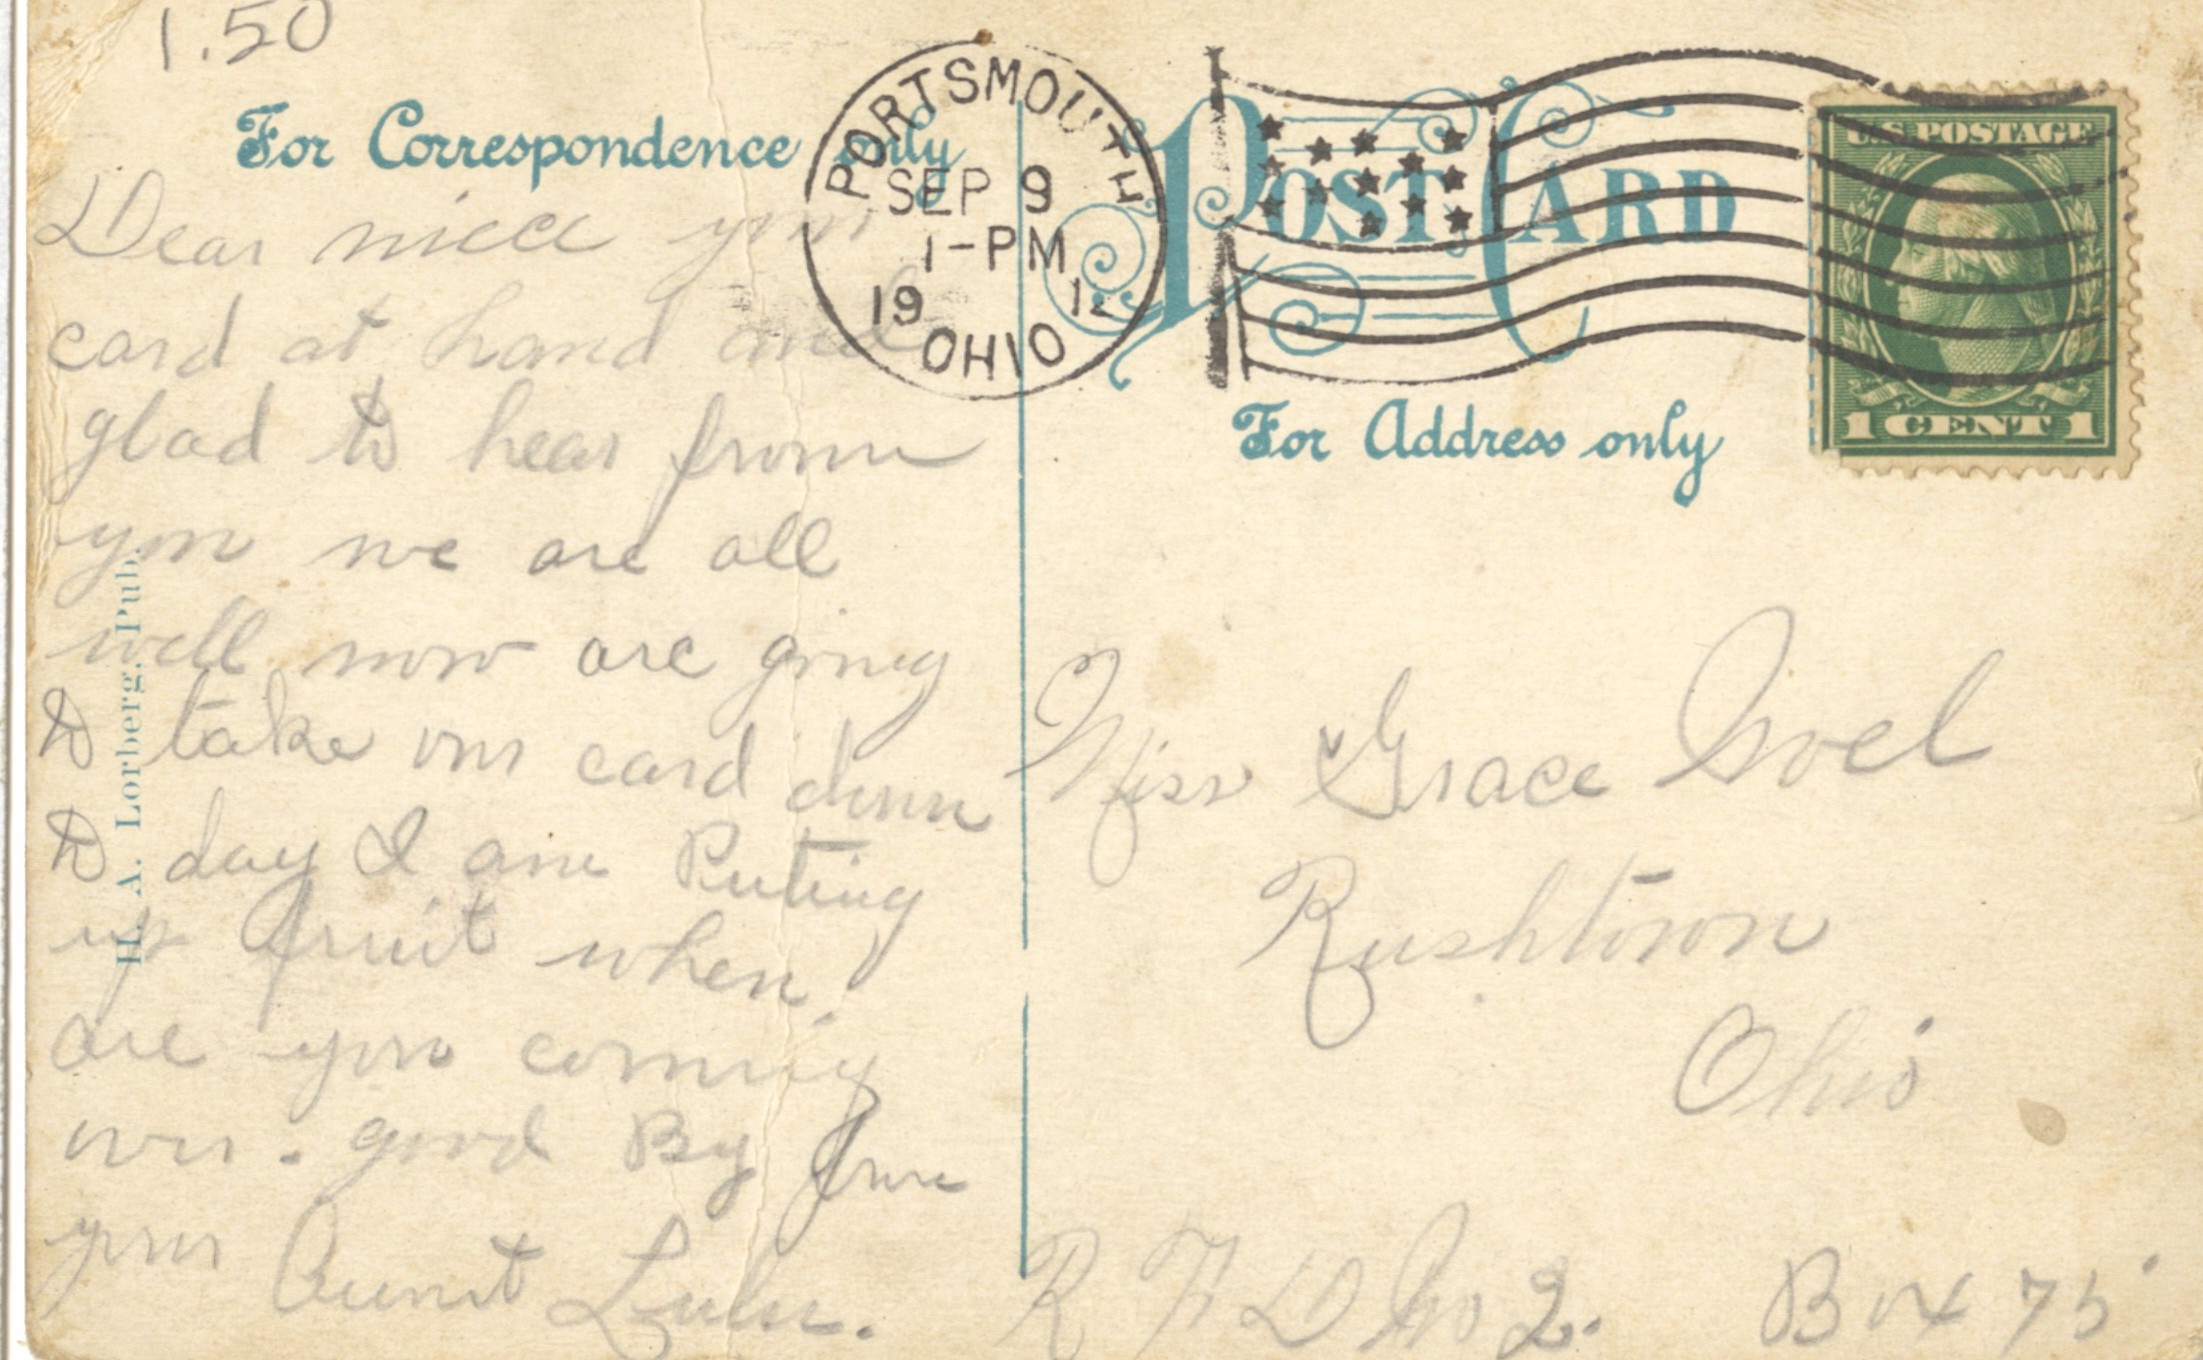 1.50
For Correspondence only
Dear niece your
card at hand and
glad to hear from
you we are all
well now are going
to take our card down
to day I am Puting
up fruit when
are you coming
over. good By from
your Aunt Lulu.
H. A. Lorberg, Pub.
PORTSMOUTH
SEP 9
1-PM
1912
OHIO
POST CARD
For Address only
U.S. POSTAGE
1 CENT 1
Miss Grace Noel
Rushtown
Ohio
R F D No 2. Box 75